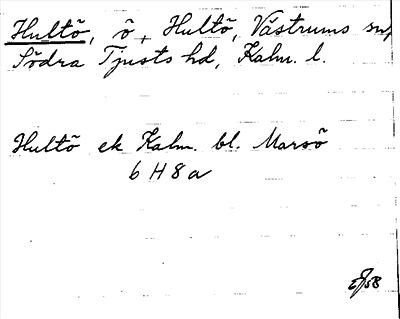 Hultö, ö, Hultö, Västrums sn,
Södra Tjusts hd, Kalm. l.
Hultö ek Kalm. bl. Marsö
6 H 8 a